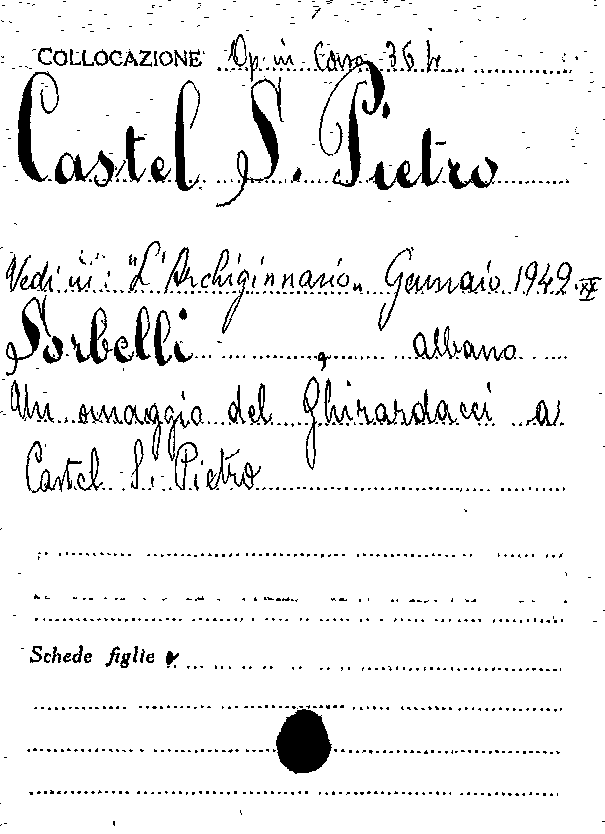 COLLOCAZIONE Op. in Cons. 36 h
Castel S. Pietro
Vedi in: "L'Archiginnasio" Gennaio 1942. XX
Sorbelli albano
Un omaggio del Ghirardacci a
Castel S. Pietro
Schede figlie